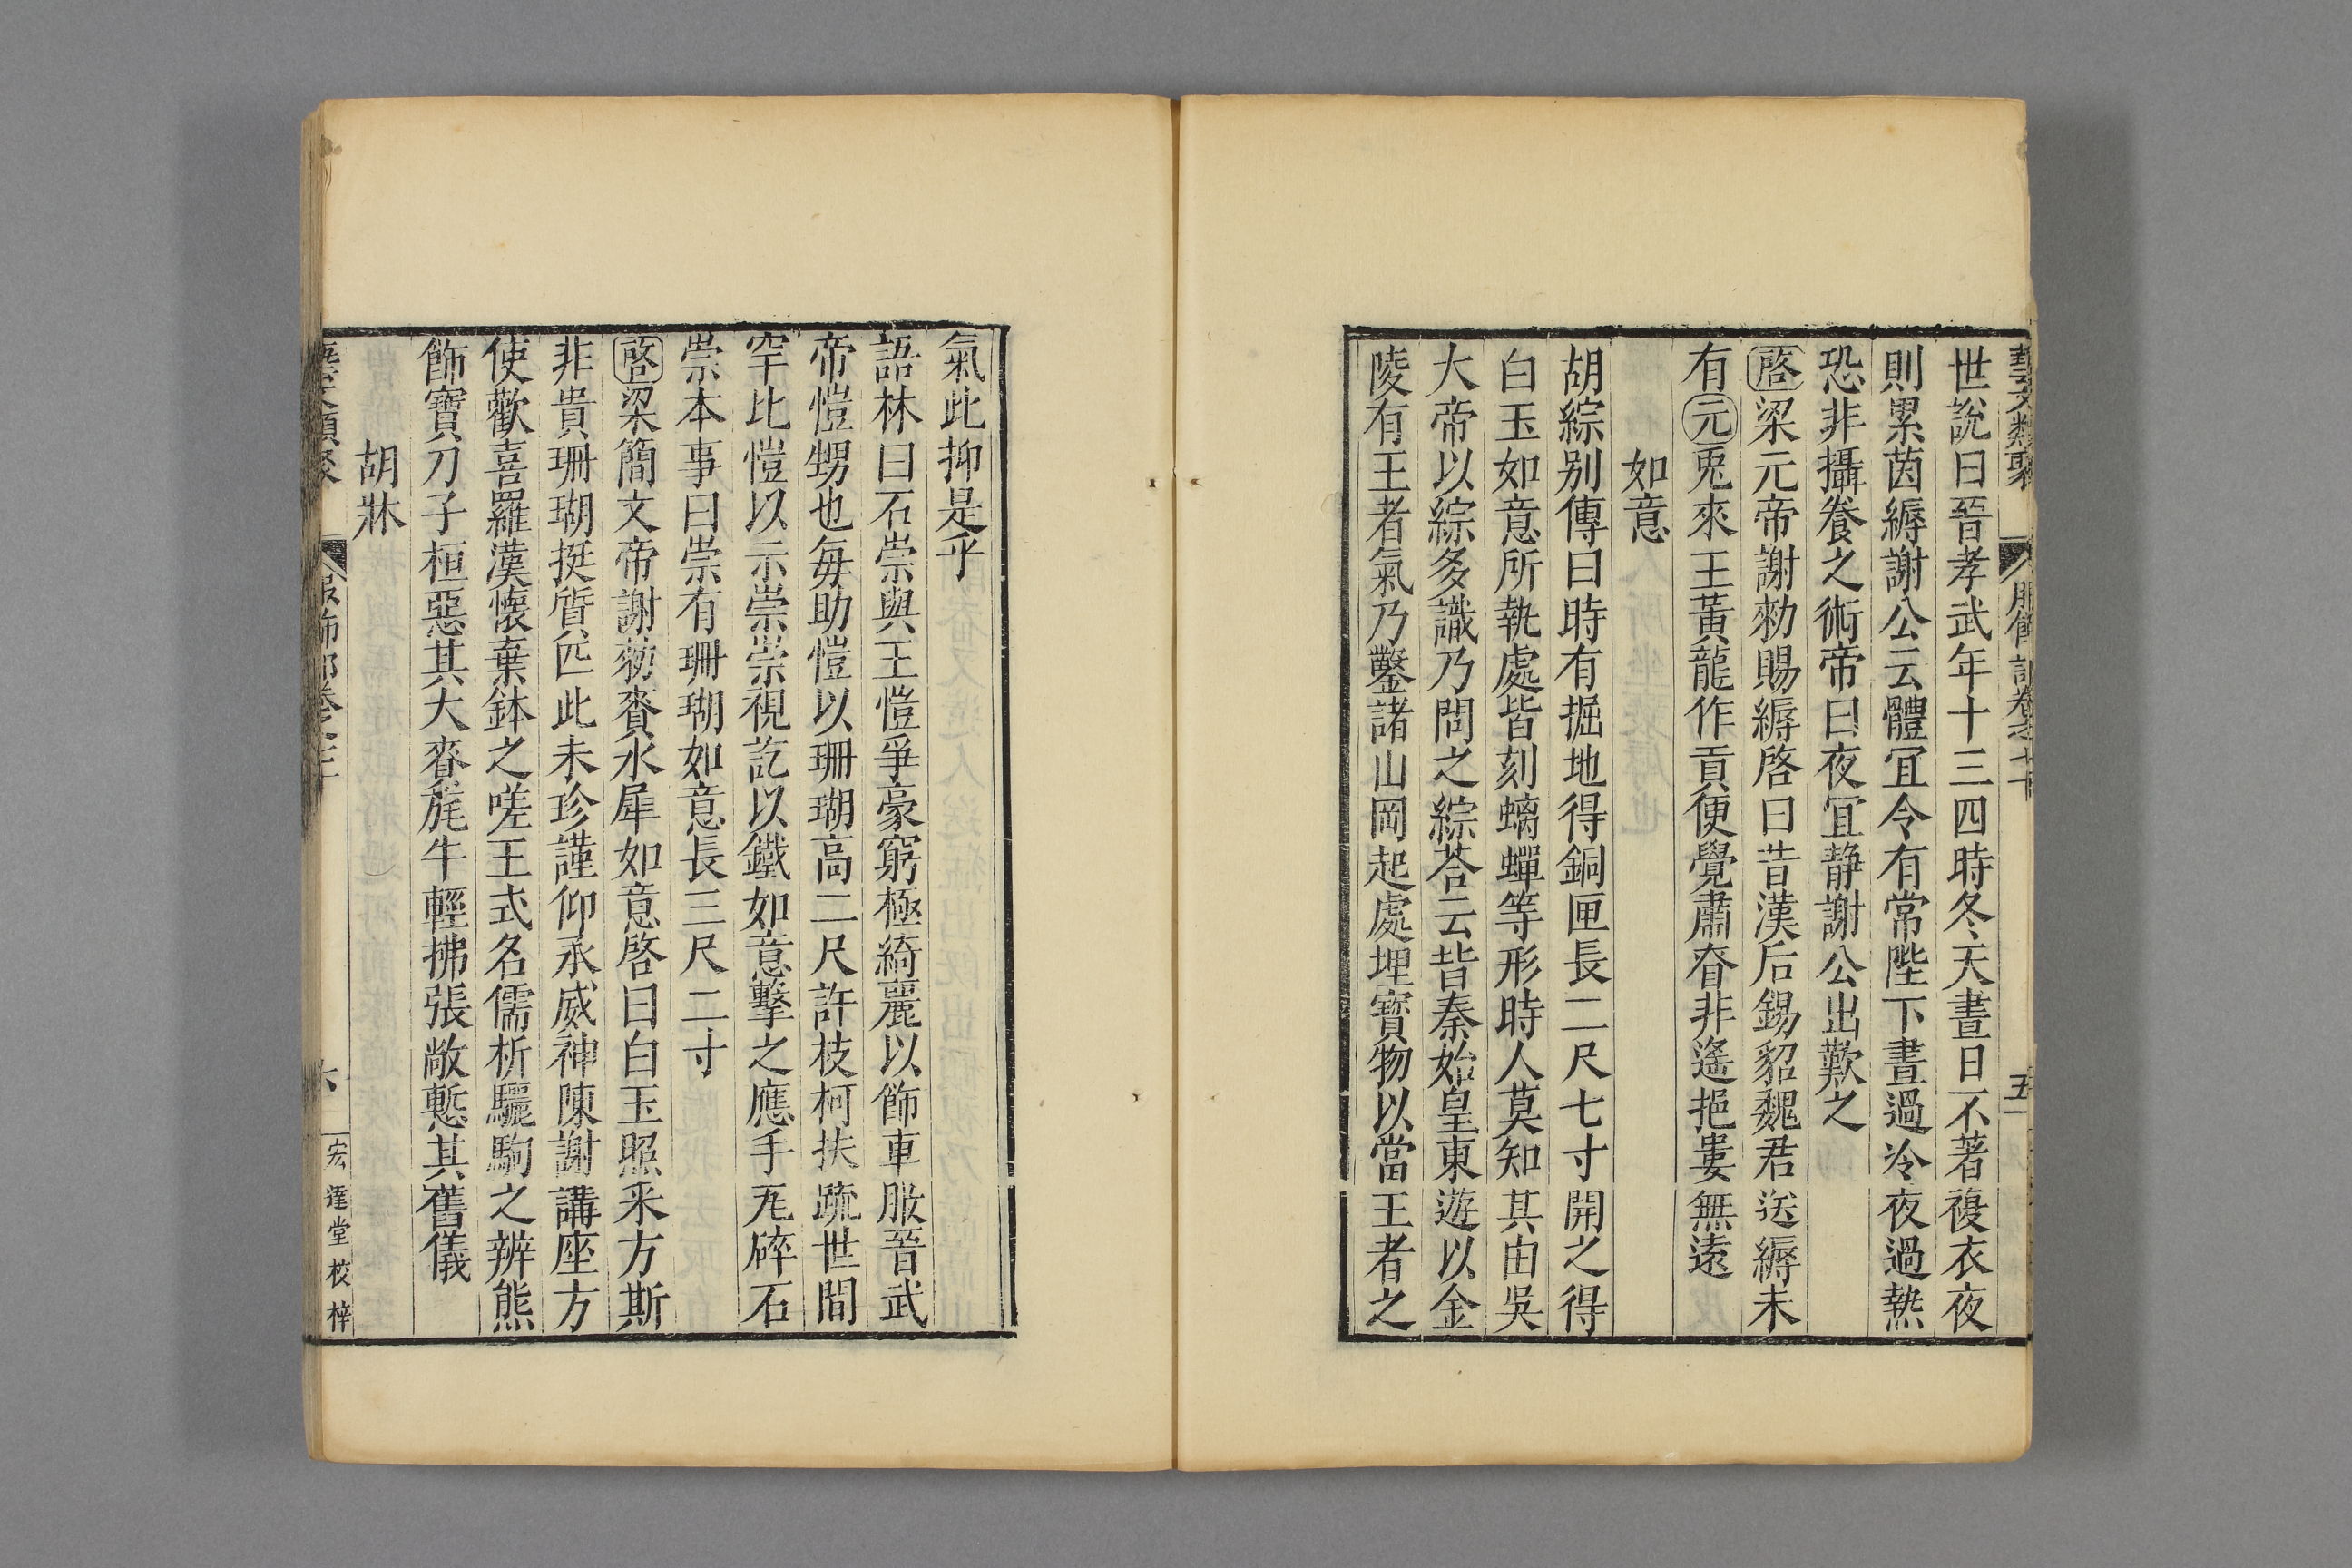 藝文類聚 服飾部卷七十 五
世說曰晉孝武年十三四時冬天晝日不著複衣夜
則累茵縟謝公云體宜令有常陛下晝過冷夜過熱
恐非攝養之術帝曰夜宜静謝公出歎之
啓梁元帝謝勑賜縟啓曰昔漢后錫貂魏君送縟未
有元兎來王黃龍作貢便覺肅脊非遙挹婁無遠
如意
胡綜别傳曰時有掘地得銅匣長二尺七寸開之得
白玉如意所執處皆刻螭蟬等形時人莫知其由吳
大帝以綜多識乃問之綜荅云昔秦始皇東遊以金
陵有王者氣乃鑿諸山岡起處埋寶物以當王者之
氣此抑是乎
語林曰石崇與王愷爭豪窮極綺麗以飾車服晉武
帝愷甥也每助愷以珊瑚高二尺許枝柯扶疏世間
罕比愷以示崇崇視訖以鐵如意擊之應手㡯碎石
崇本事曰崇有珊瑚如意長三尺二寸
啓梁簡文帝謝勑賚水犀如意啓曰白玉照采方斯
非貴珊瑚挺質匹此未珍謹仰承威神陳謝講座方
使歡喜羅漢懷棄鉢之嗟王式名儒析驪駒之辨熊
飾寶刀子桓惡其大賚旄牛輕拂張敞慙其舊儀
胡牀
藝文類聚 服飾部卷七十 六 宏達堂校梓